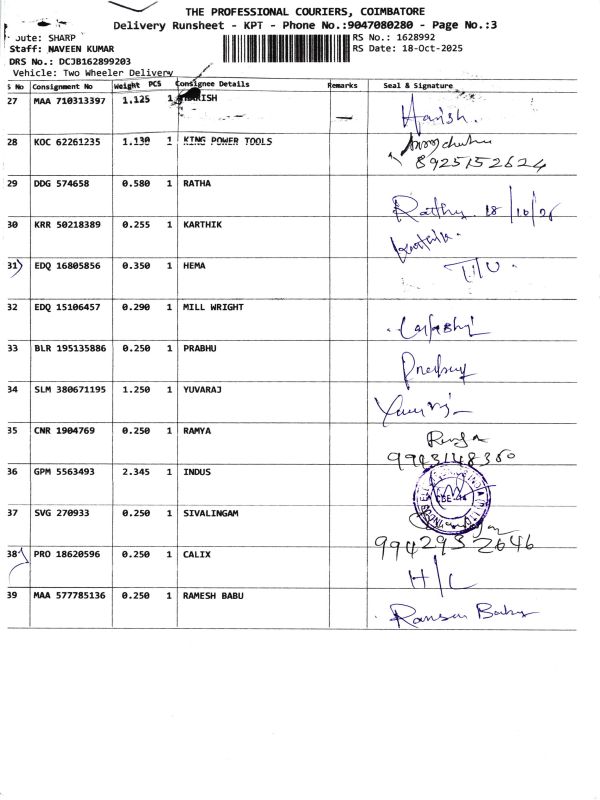 THE PROFESSIONAL COURIERS, COIMBATORE
Delivery Runsheet - KPT - Phone No.:9047080280 - Page No.:3
oute: SHARP
RS No.: 1628992
Staff: NAVEEN KUMAR
RS Date: 18-Oct-2025
DRS No.: DCJB162899203
Vehicle: Two Wheeler Delivery
S No Consignment No Weight PCS Consignee Details Remarks Seal & Signature
27 MAA 710313397 1.125 1 HARISH Harish.
28 KOC 62261235 1.130 1 KING POWER TOOLS
8925152624
29 DDG 574658 0.580 1 RATHA Rathy. 18/10/25
30 KRR 50218389 0.255 1 KARTHIK
31 EDQ 16805856 0.350 1 HEMA
32 EDQ 15106457 0.290 1 MILL WRIGHT
33 BLR 195135886 0.250 1 PRABHU
34 SLM 380671195 1.250 1 YUVARAJ
35 CNR 1904769 0.250 1 RAMYA
9943148360
36 GPM 5563493 2.345 1 INDUS
37 SVG 270933 0.250 1 SIVALINGAM
9942932646
38 PRO 18620596 0.250 1 CALIX H/C
39 MAA 577785136 0.250 1 RAMESH BABU